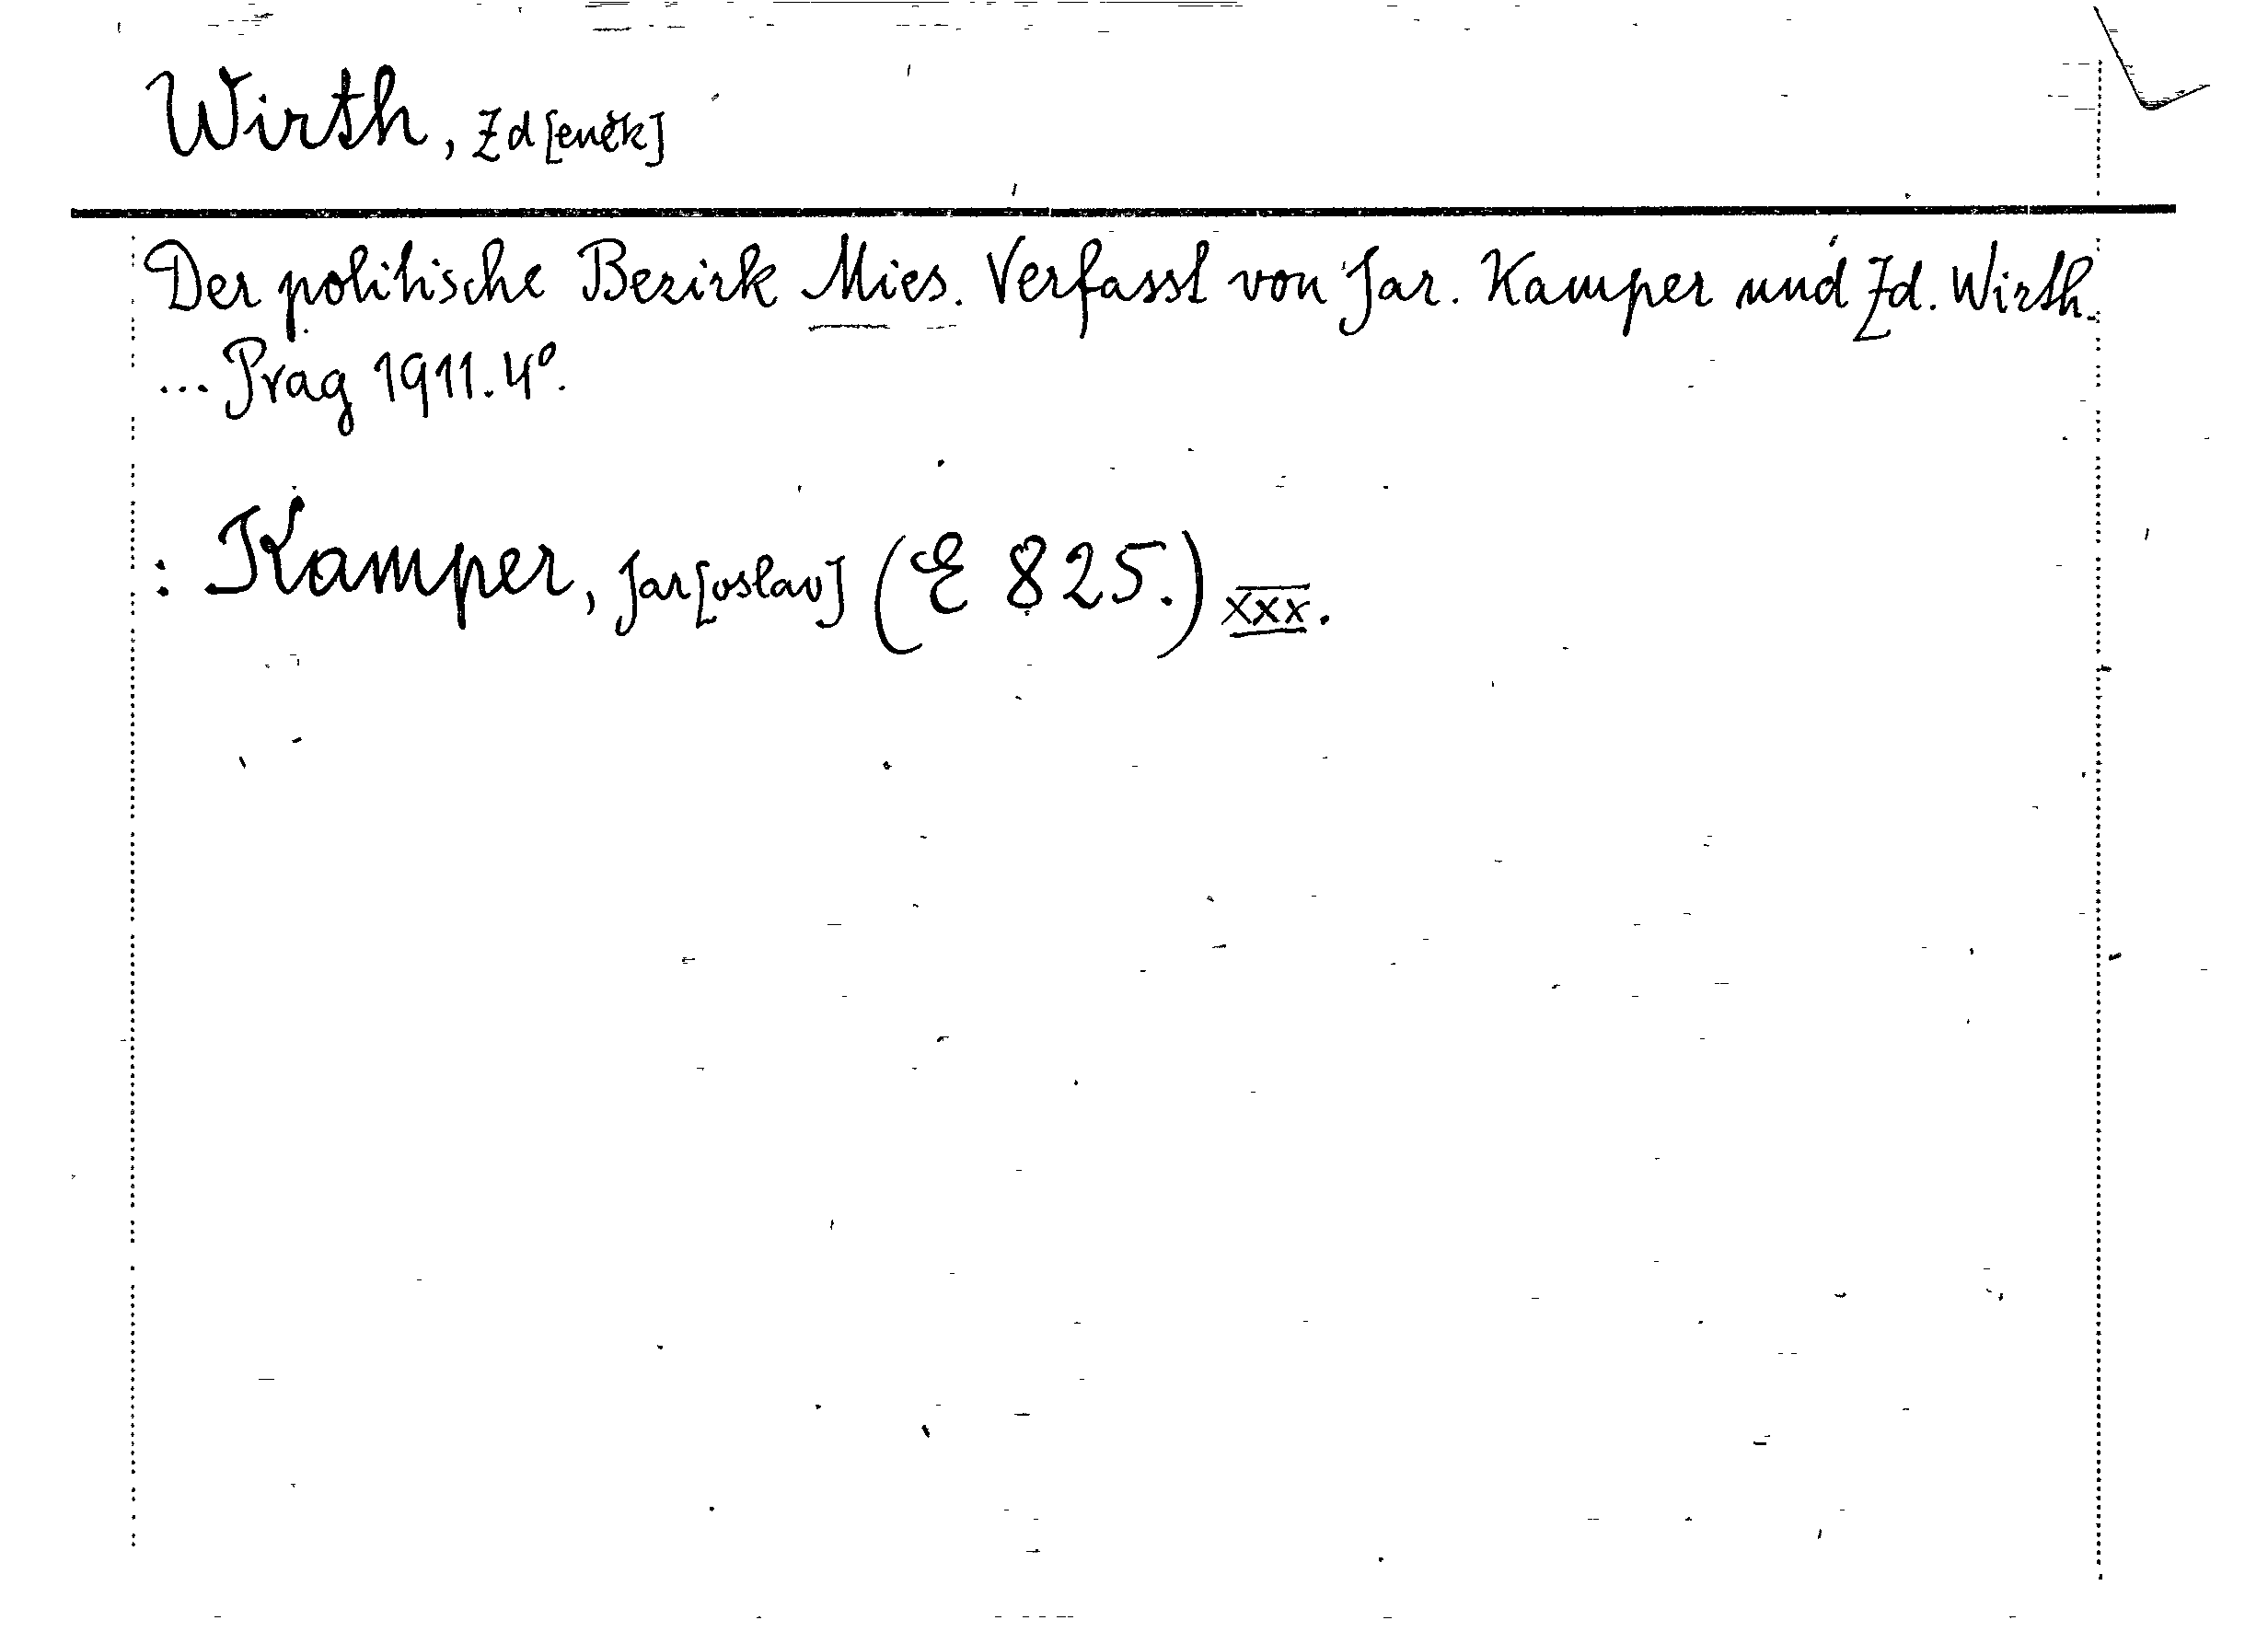 Wirth, Zd[eněk]
Der politische Bezirk Mies. Verfasst von Jar. Kamper und Zd. Wirth.
... Prag 1911. 4°.
: Kamper, Jar[oslav] (E 825.) XXX.